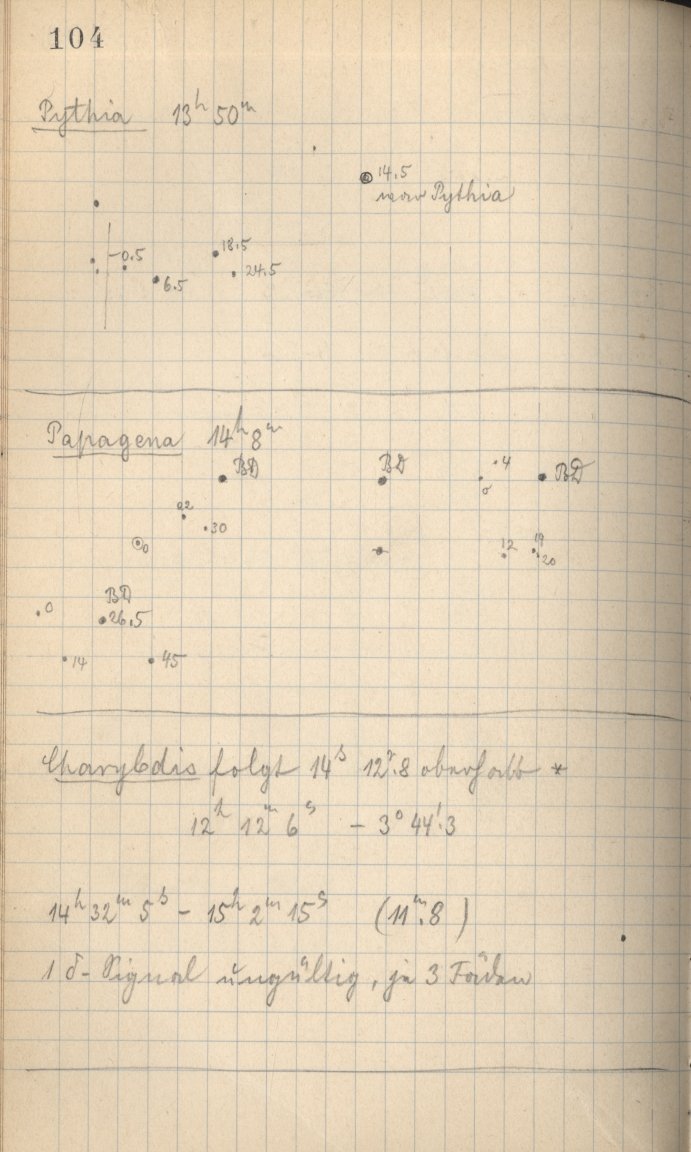 104
Pythia 13h 50m
14.5
war Pythia
-0.5
18.5
24.5
6.5
Papagena 14h 8m
BD
BD
4
BD
0
22
30
0
12
19
20
BD
0
26.5
14
45
Charybdis folgt 14s 12r.8 oberhalb *
12h 12m 6s - 3° 44'.3
14h 32m 5s - 15h 2m 15s (11m.8)
1 δ-Signal ungültig, je 3 Fäden